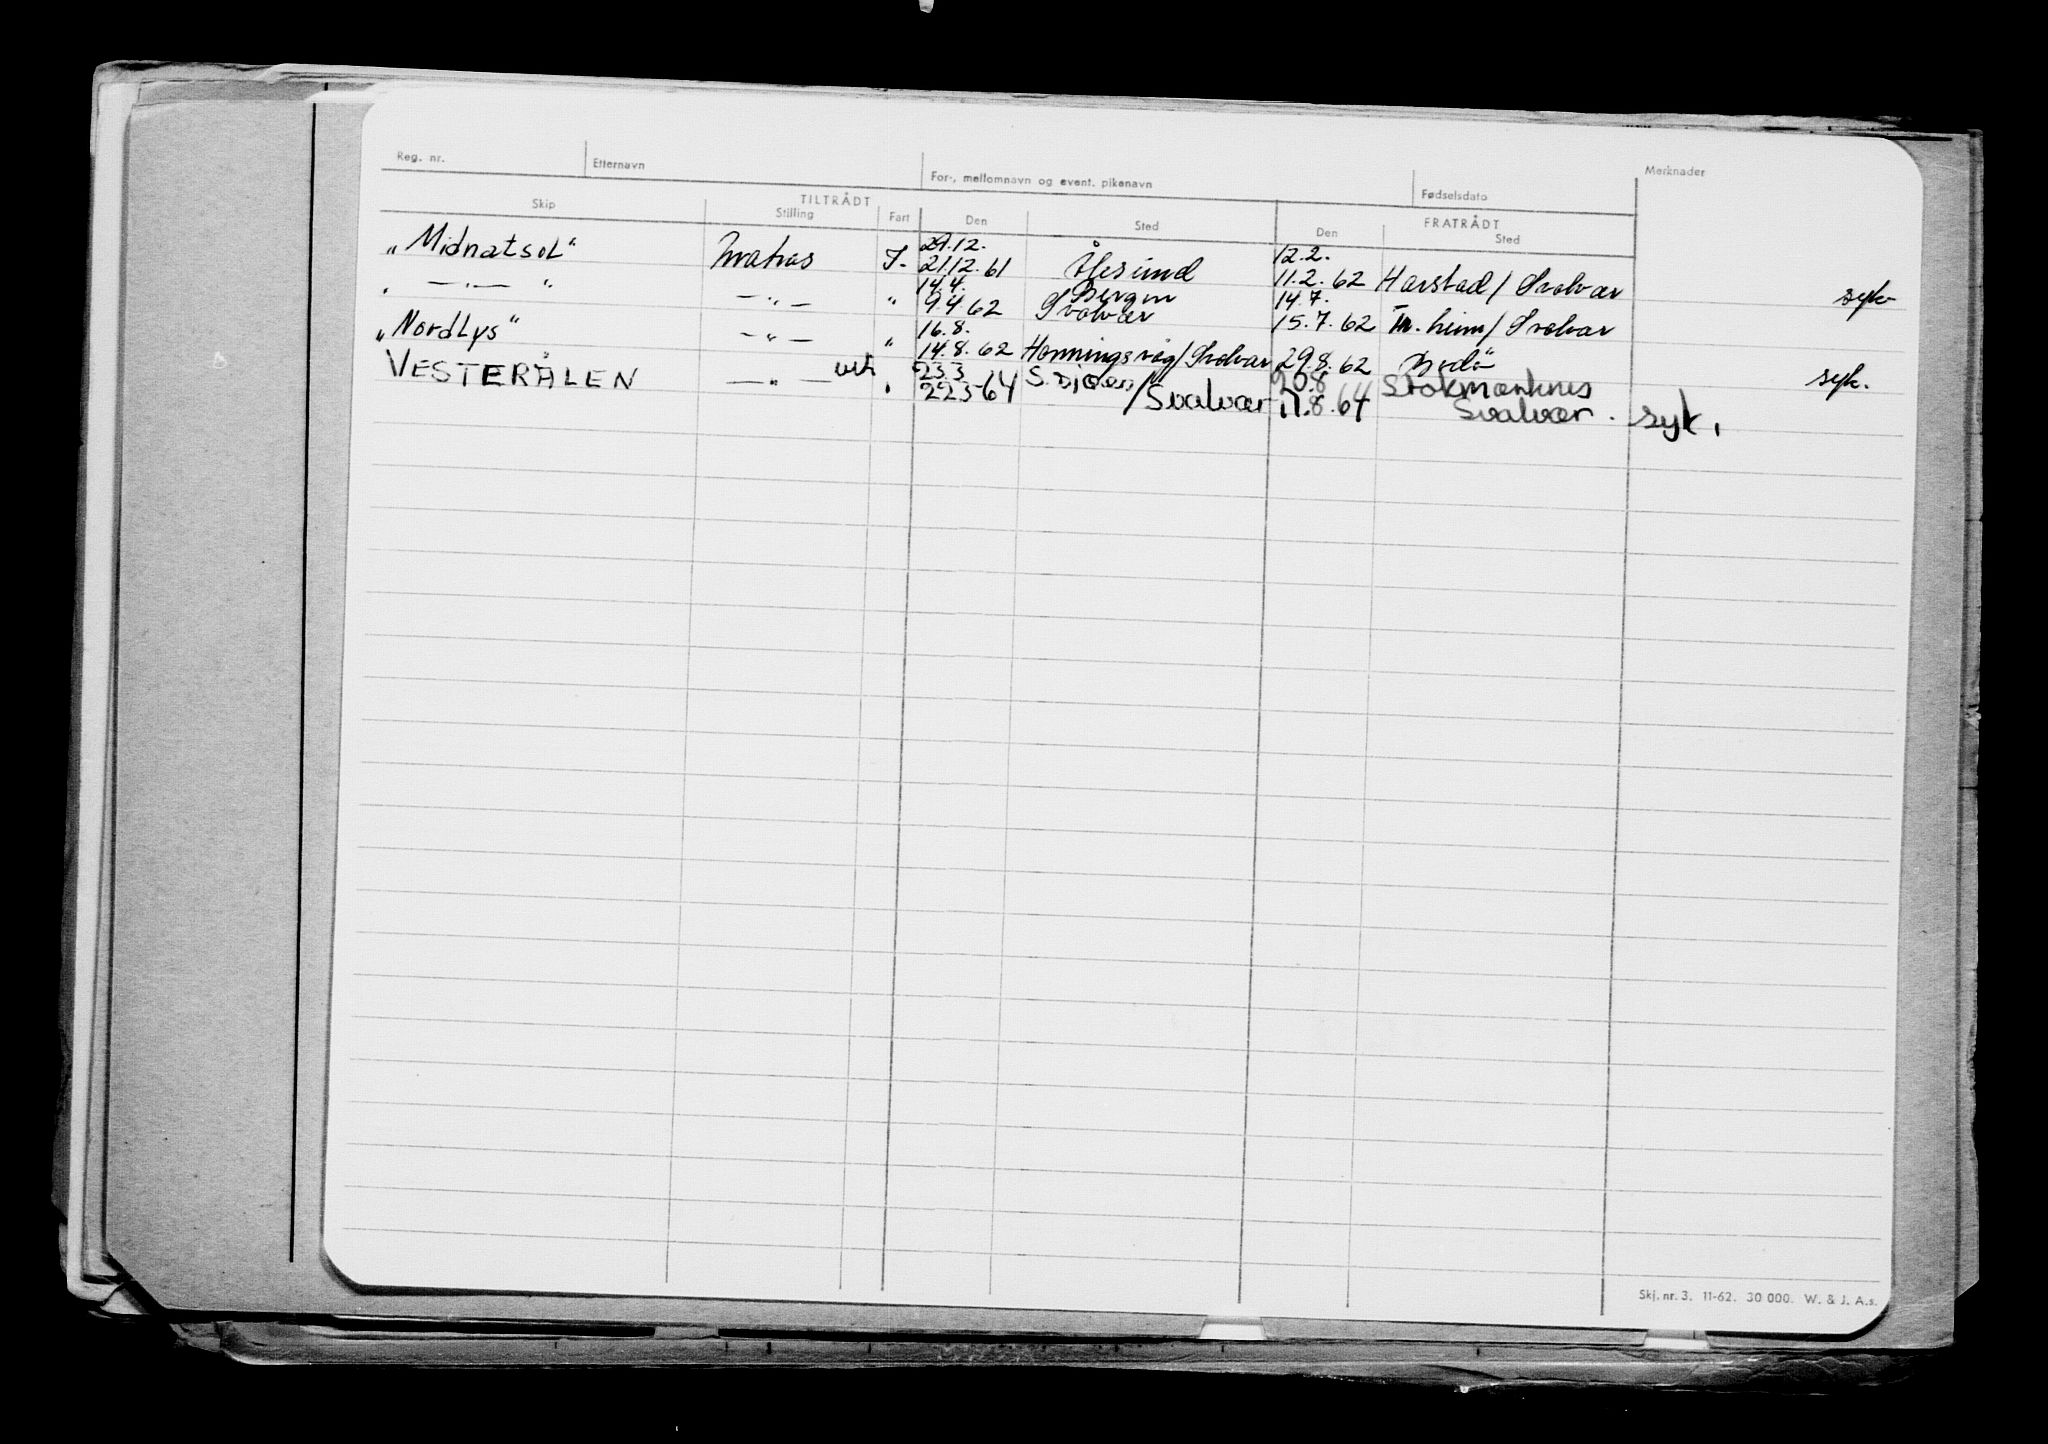 Reg. nr. Etternavn For-, mellomnavn og event. pikenavn Fødselsdato Merknader
TILTRÅDT FRATRÅDT
Skip Stilling Fart Den Sted Den Sted
29.12. 12.2.
"Midnatsol" Matros I. 21.12.61 Ålesund 11.2.62 Harstad/Svolvær syk
14.4. Bergen 14.7.
" — " — " — " — " 9.4.62 Svolvær 15.7.62 Tr.heim/Svolvær
16.8.
"Nordlys" — " — " 14.8.62 Honningsvåg/Svolvær 29.8.62 Bodö syk.
23.3 20.8 64 Stokmarknes
VESTERÅLEN — " — " 22.3-64 /Svolvær 17.8.64 Svolvær. syk.
Skj. nr. 3. 11-62. 30 000. W. & J. A.s.